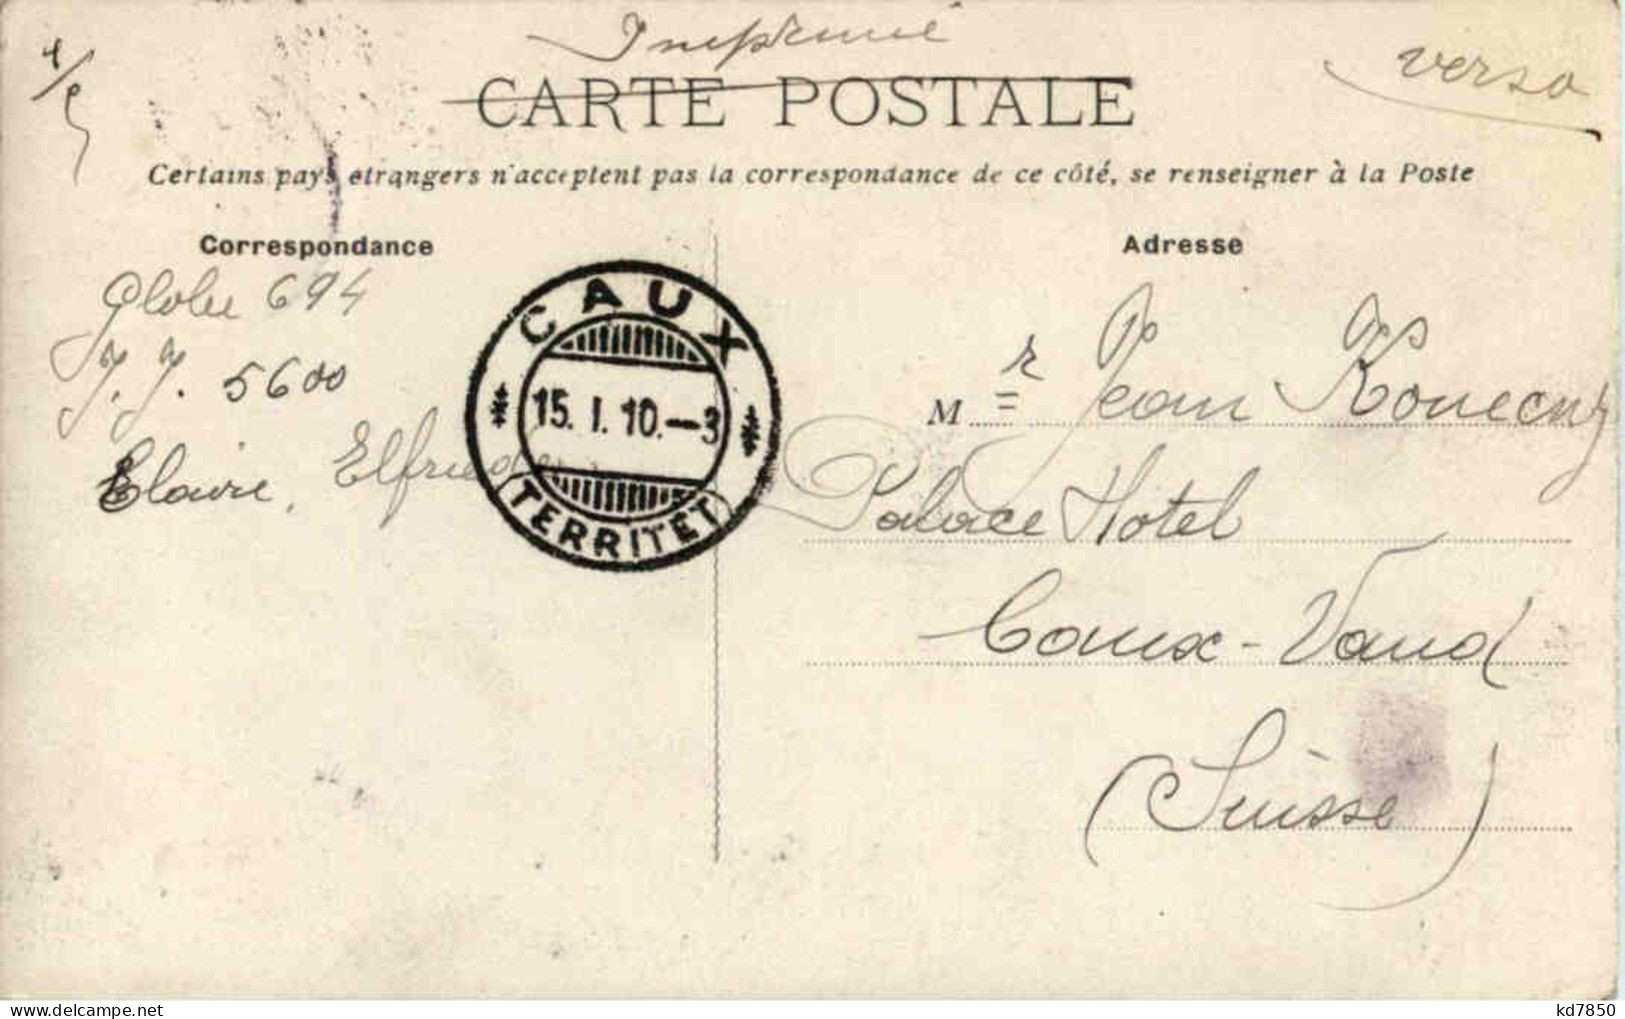 Imprimé
verso
CARTE POSTALE
Certains pays étrangers n'acceptent pas la correspondance de ce côté, se renseigner à la Poste
Correspondance
Adresse
Globe 694
J. J. 5600
Claire, Elfriede
CAUX
15. I. 10.—3
TERRITET
M r Jean Konecny
Palace Hotel
Caux-Vaud
(Suisse)
kd7850